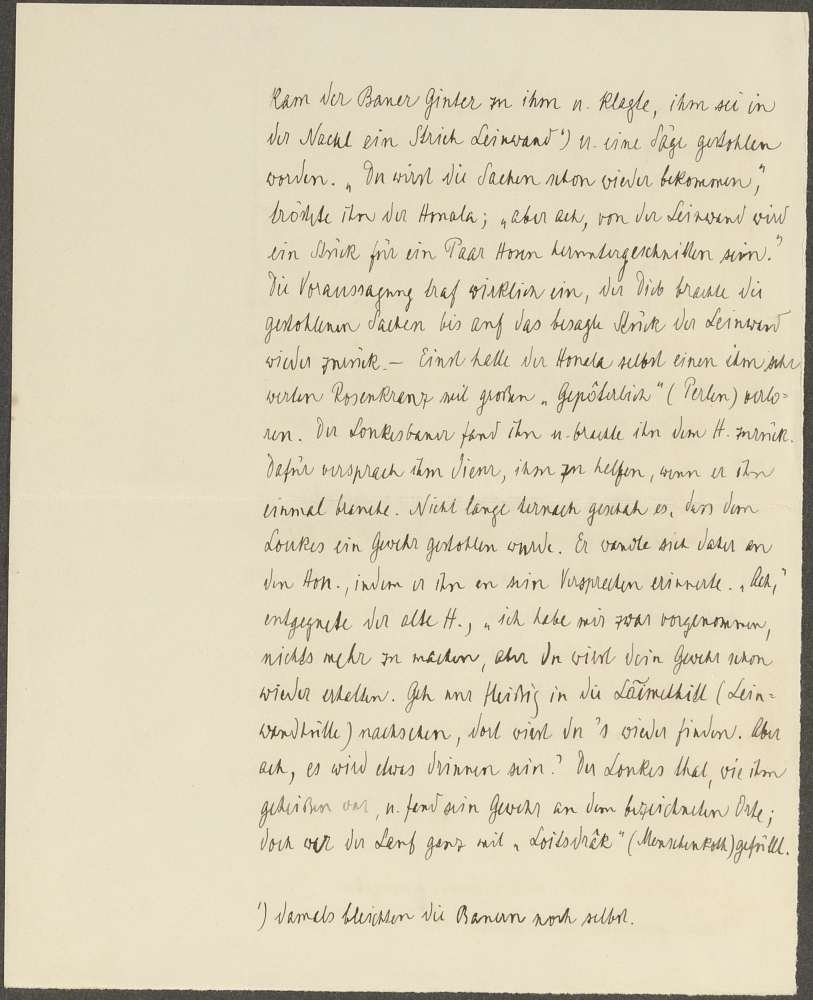 kam der Bauer Ginter zu ihm u. klagte, ihm sei in
der Nacht ein Strich Leinwand ¹) u. eine Säge gestohlen
worden. „Du wirst die Sachen schon wieder bekommen,"
tröstete ihn der Honala; „aber ach, von der Leinwand wird
ein Stück für ein Paar Hosen heruntergeschnitten sein."
Die Voraussagung traf wirklich ein, der Dieb brachte die
gestohlenen Sachen bis auf das besagte Stück der Leinwand
wieder zurück. – Einst hatte der Honala selbst einen ihm sehr
werten Rosenkranz mit großen „Gepôterlich" (Perlen) verlo=
ren. Der Loukesbauer fand ihn u. brachte ihn dem H. zurück.
Dafür versprach ihm dieser, ihm zu helfen, wenn er ihn
einmal brauche. Nicht lange hernach geschah es, dass dem
Loukes ein Gewehr gestohlen wurde. Er wandte sich daher an
den Hon., indem er ihn an sein Versprechen erinnerte. „Ach,"
entgegnete der alte H., „ich habe mir zwar vorgenommen,
nichts mehr zu machen, aber du wirst dein Gewehr schon
wieder erhalten. Geh nur fleißig in die (Lein=
wandhütte) nachsehen, dort wirst du 's wieder finden. Aber
ach, es wird etwas drinnen sein." Der Loukes that, wie ihm
geheißen war, u. fand sein Gewehr an dem bezeichneten Orte;
doch war der Lauf ganz mit „Loitsdrâk" (Menschenkoth) gefüllt.
¹) damals bleichten die Bauern noch selbst.